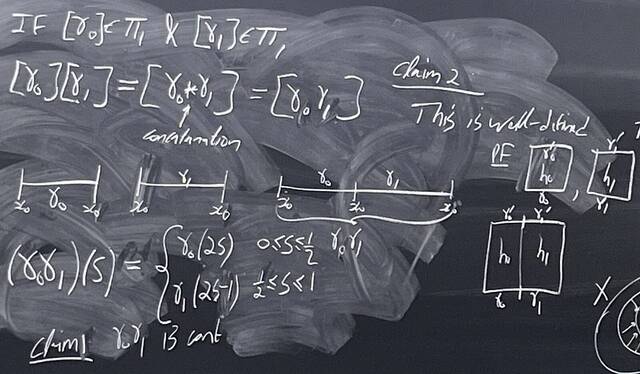 IF [γ₀]∈π₁ & [γ₁]∈π₁
[γ₀][γ₁] = [γ₀*γ₁] = [γ₀γ₁]
concatenation
Claim 2
This is well-defined
PF
γ₀'
h₀
,
γ₁'
h₁
γ₁
γ₀ γ₁ γ₀ γ₁
x₀ γ₀ x₀ x₀ x₀ x₀ x₀ x₀
γ₀γ₁
γ₀' γ₁'
h₀ h₁
γ₀ γ₁
(γ₀γ₁)(s) = { γ₀(2s) 0≤s≤1/2
γ₁(2s-1) 1/2≤s≤1
Claim 1 γ₀γ₁ is cont
X